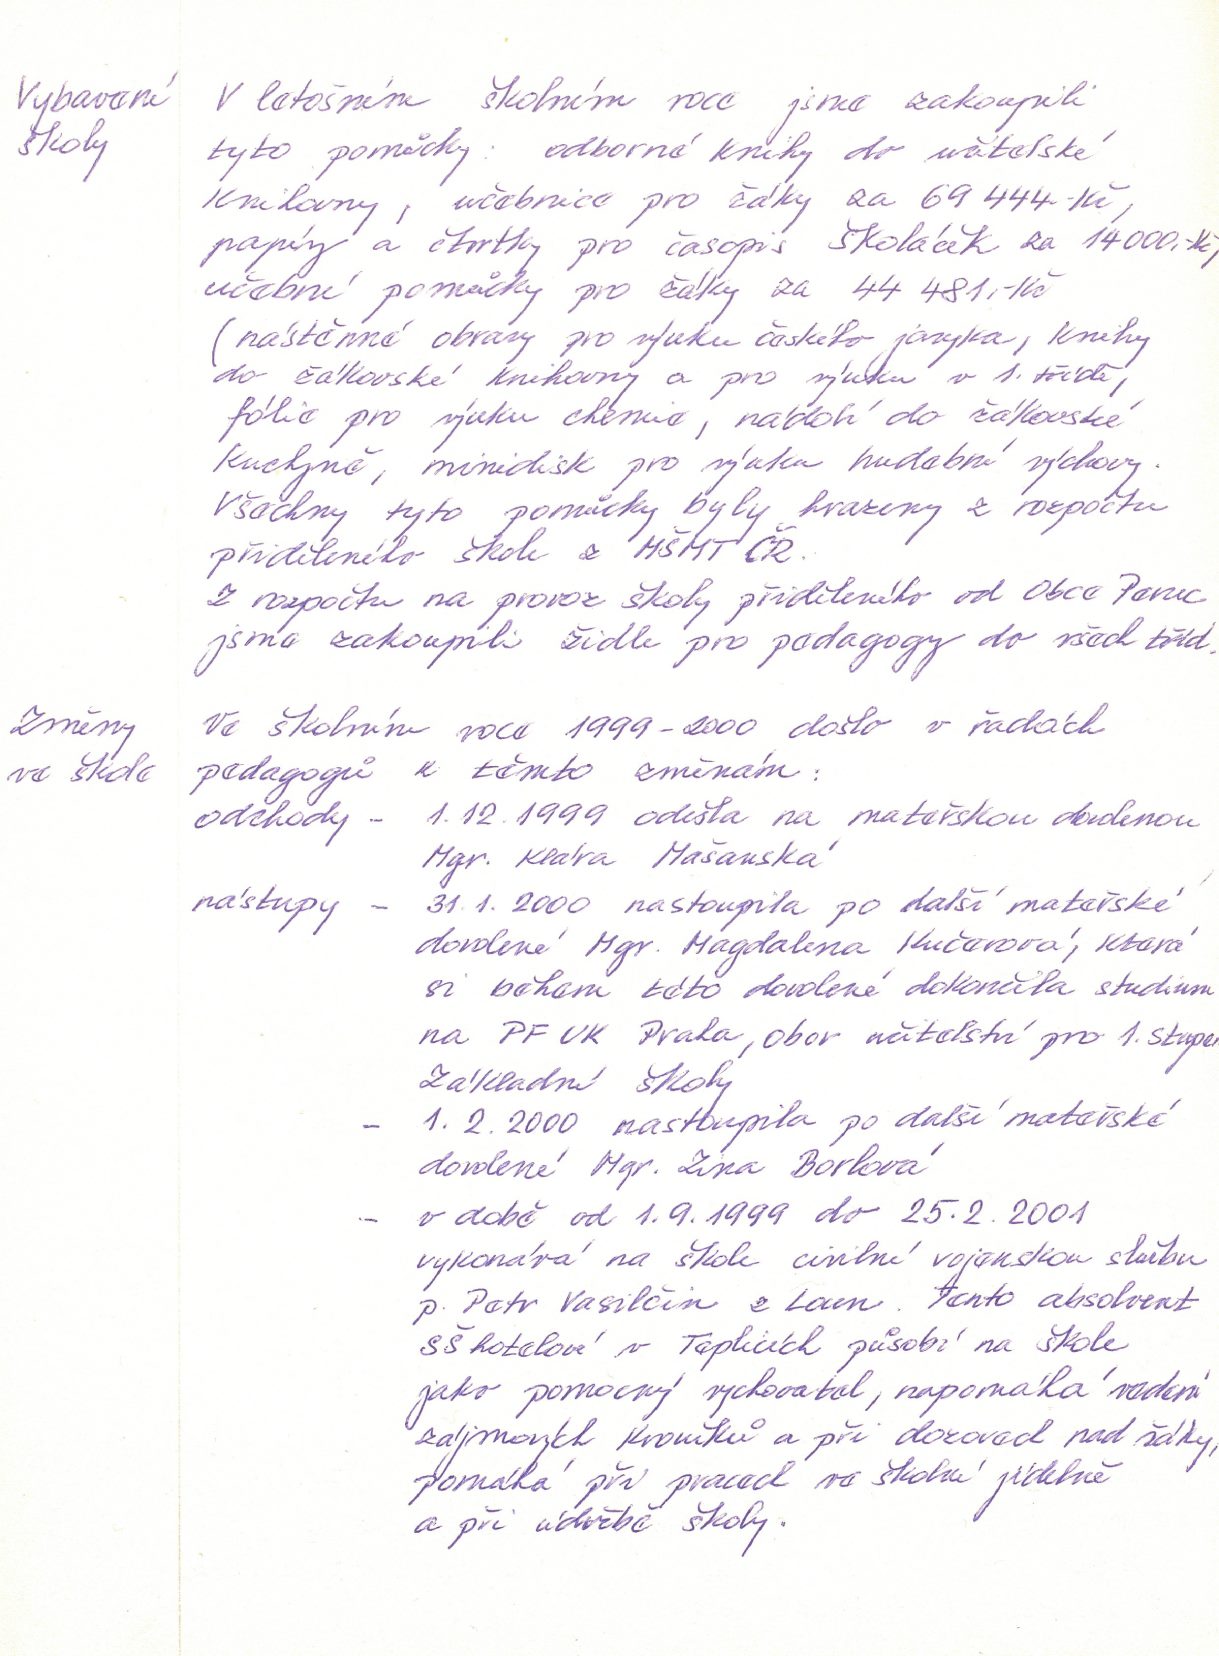 Vybavení školy
V letošním školním roce jsme zakoupili
tyto pomůcky: odborné knihy do učitelské
knihovny, učebnice pro žáky za 69 444,-Kč,
papíry a čtvrtky pro časopis Školáček za 14000,-Kč,
učební pomůcky pro žáky za 44 481,-Kč
(nástěnné obrazy pro výuku českého jazyka, knihy
do žákovské knihovny a pro výuku v 1. třídě,
fólie pro výuku chemie, nádobí do žákovské
kuchyně, minidisk pro výuku hudební výchovy.
Všechny tyto pomůcky byly hrazeny z rozpočtu
přiděleného škole z MŠMT ČR.
Z rozpočtu na provoz školy přiděleného od Obce Peruc
jsme zakoupili židle pro pedagogy do všech tříd.
Změny ve škole
Ve školním roce 1999-2000 došlo v řadách
pedagogů k těmto změnám:
odchody - 1.12.1999 odešla na mateřskou dovolenou
Mgr. Klára Mašanská
nástupy - 31.1.2000 nastoupila po další mateřské
dovolené Mgr. Magdalena Kučerová, která
si během této dovolené dokončila studium
na PF UK Praha, obor učitelství pro 1. stupeň
základní školy
- 1.2.2000 nastoupila po další mateřské
dovolené Mgr. Zina Borlová
- v době od 1.9.1999 do 25.2.2001
vykonává na škole civilní vojenskou službu
p. Petr Vasilčin z Loun. Tento absolvent
SŠ hotelové v Teplicích působí na škole
jako pomocný vychovatel, napomáhá vedení
zájmových kroužků a při dozorech nad žáky,
pomáhá při pracech ve školní jídelně
a při údržbě školy.